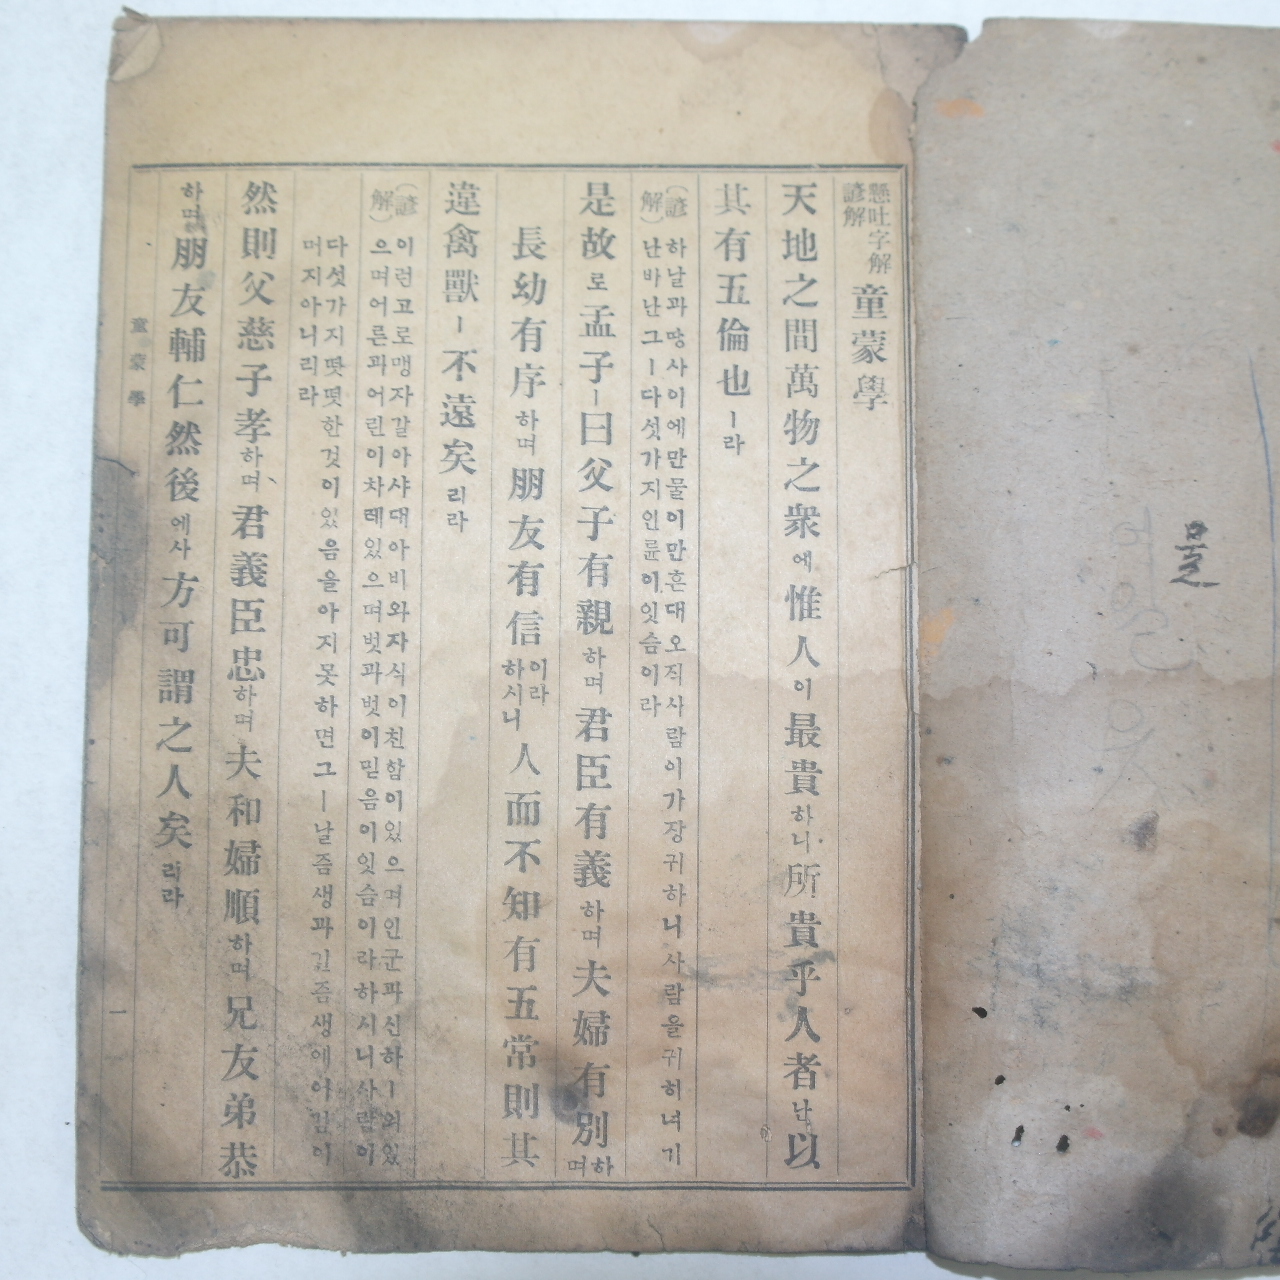 懸吐字解
諺解
童蒙學
天地之間萬物之衆에惟人이最貴하니所貴乎人者난以
其有五倫也ㅣ라
(諺解)
하날과땅사이에만물이만흔대오직사람이가장귀하니사람을귀히녀기
난바난그ㅣ다섯가지인륜이잇슴이라
是故로孟子ㅣ曰父子有親하며君臣有義하며夫婦有別하며
長幼有序하며朋友有信이라하시니人而不知有五常則其
違禽獸ㅣ不遠矣리라
(諺解)
이런고로맹자갈아샤대아비와자식이친함이있으며인군과신하ㅣ의있
으며어른과어린이차례있으며벗과벗이믿음이잇슴이라하시니사람이
다섯가지떳떳한것이있음을아지못하면그ㅣ날즘생과긴즘생에어김이
머지아니리라
然則父慈子孝하며君義臣忠하며夫和婦順하며兄友弟恭
하며朋友輔仁然後에사方可謂之人矣리라
童蒙學
一
문